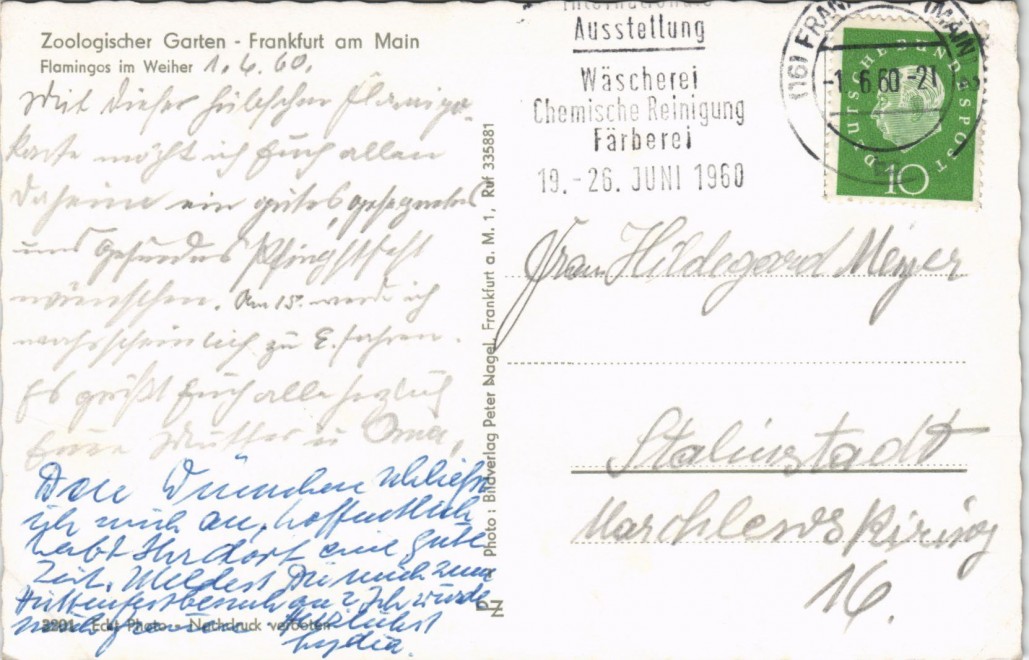 Zoologischer Garten - Frankfurt am Main
Flamingos im Weiher 1.6.60.
Mit dieser hübschen Flamingo-
karte möcht ich Euch allen
daheime ein gutes, gesegnetes
und gesundes Pfingstfest
wünschen. Am 15. werde ich
wahrscheinlich zu E. fahren.
Es grüßt Euch alle herzlich
Eure Mutter u Oma,
Den Wünschen schließe
ich mich an, hoffentlich
habt Ihr dort eine gute
Zeit. Meldest Du mich zum
Hüttenfestbesuch an? Ich würde
mich freuen Herzlichst
Lydia.
3201 Echt Photo - Nachdruck verboten
Photo: Bildverlag Peter Nagel, Frankfurt a. M. 1, Ruf 335881
Internationale
Ausstellung
Wäscherei
Chemische Reinigung
Färberei
19.-26. JUNI 1960
(16) FRANKFURT (MAIN) 2
-1.6.60-21
DEUTSCHE BUNDESPOST
10
Frau Hildegard Meyer
Stalinstadt
Marchlewskiring
16.